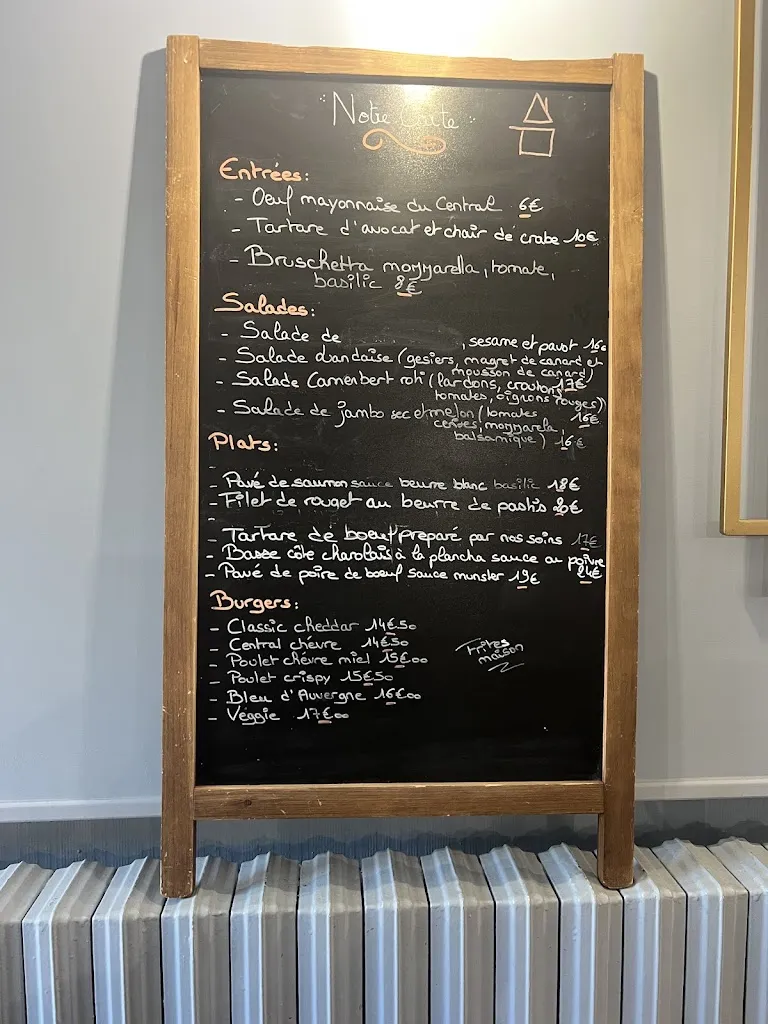 Notre Carte
Entrées:
- Oeuf mayonnaise du Central 6€
- Tartare d'avocat et chair de crabe 10€
- Bruschetta mozzarella, tomate,
basilic 8€
Salades:
- Salade de , sesame et pavot 16€
- Salade landaise (gesiers, magret de canard et
mousson de canard)
- Salade Camembert roti (lardons, croutons, 17€
tomates, oignons rouges)
16€
- Salade de jambo sec et melon (tomates
cerises, mozzarela
balsamique) 16€
Plats:
- Pavé de saumon sauce beurre blanc basilic 18€
- Filet de rouget au beurre de pastis 20€
- Tartare de boeuf preparé par nos soins 17€
- Basse côte charolais à la plancha sauce au poivre
24€
- Pavé de poire de boeuf sauce munster 19€
Burgers:
- Classic cheddar 14€50
- Central chévre 14€50
- Poulet chévre miel 15€00
- Poulet crispy 15€50
- Bleu d'Auvergne 16€00
- Véggie 17€00
Frites
maison